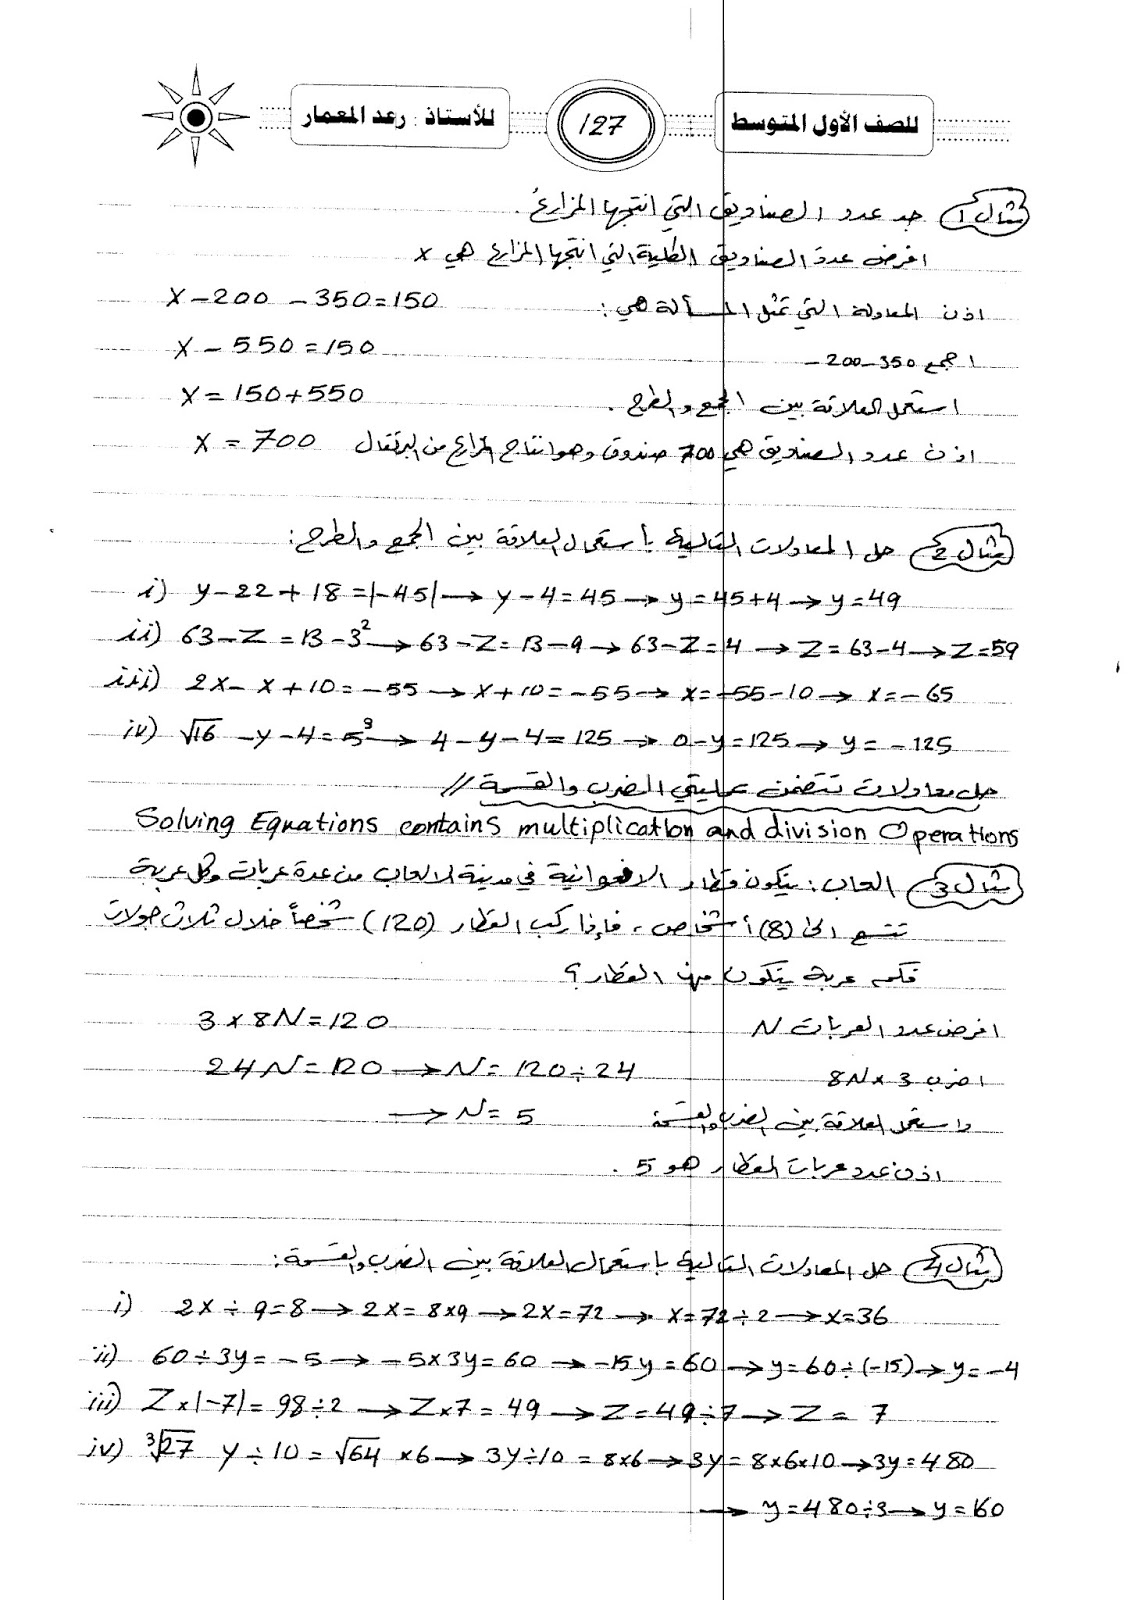 للصف الأول المتوسط
127
للأستاذ : رعد المعمار
مثال 1 جد عدد الصناديق التي انتجها المزارع.
افرض عدد الصناديق الكلية التي انتجها المزارع هي x
اذن المعادلة التي تمثل المسألة هي: x - 200 - 350 = 150
اجمع -200-350 x - 550 = 150
استعمل العلاقة بين الجمع والطرح. x = 150 + 550
اذن عدد الصناديق هي 700 صندوق وهو انتاج المزارع من البرتقال x = 700
مثال 2 حل المعادلات التالية بأستعمال العلاقة بين الجمع والطرح:
i) y - 22 + 18 = |-45| → y - 4 = 45 → y = 45+4 → y = 49
ii) 63 - Z = 13 - 3² → 63 - Z = 13 - 9 → 63 - Z = 4 → Z = 63 - 4 → Z = 59
iii) 2x - x + 10 = -55 → x + 10 = -55 → x = -55 - 10 → x = -65
iv) √16 - y - 4 = 5³ → 4 - y - 4 = 125 → 0 - y = 125 → y = -125
حل معادلات تتضمن عمليتي الضرب والقسمة //
Solving Equations contains multiplication and division Operations
مثال 3 العاب: يتكون قطار الافعوانية في مدينة للالعاب من عدة عربات وكل عربة
تتسع الى (8) أشخاص، فإذا ركب القطار (120) شخصاً خلال ثلاث جولات
فكم عربة يتكون منها القطار؟
افرض عدد العربات N 3 x 8N = 120
اضرب 8N x 3 24N = 120 → N = 120 ÷ 24
واستعمل العلاقة بين الضرب والقسمة → N = 5
اذن عدد عربات القطار هو 5.
مثال 4 حل المعادلات التالية باستعمال العلاقة بين الضرب والقسمة:
i) 2x ÷ 9 = 8 → 2x = 8x9 → 2x = 72 → x = 72 ÷ 2 → x = 36
ii) 60 ÷ 3y = -5 → -5 x 3y = 60 → -15y = 60 → y = 60 ÷ (-15) → y = -4
iii) Z x |-7| = 98 ÷ 2 → Z x 7 = 49 → Z = 49 ÷ 7 → Z = 7
iv) ³√27 y ÷ 10 = √64 x 6 → 3y ÷ 10 = 8x6 → 3y = 8x6x10 → 3y = 480
→ y = 480 ÷ 3 → y = 160